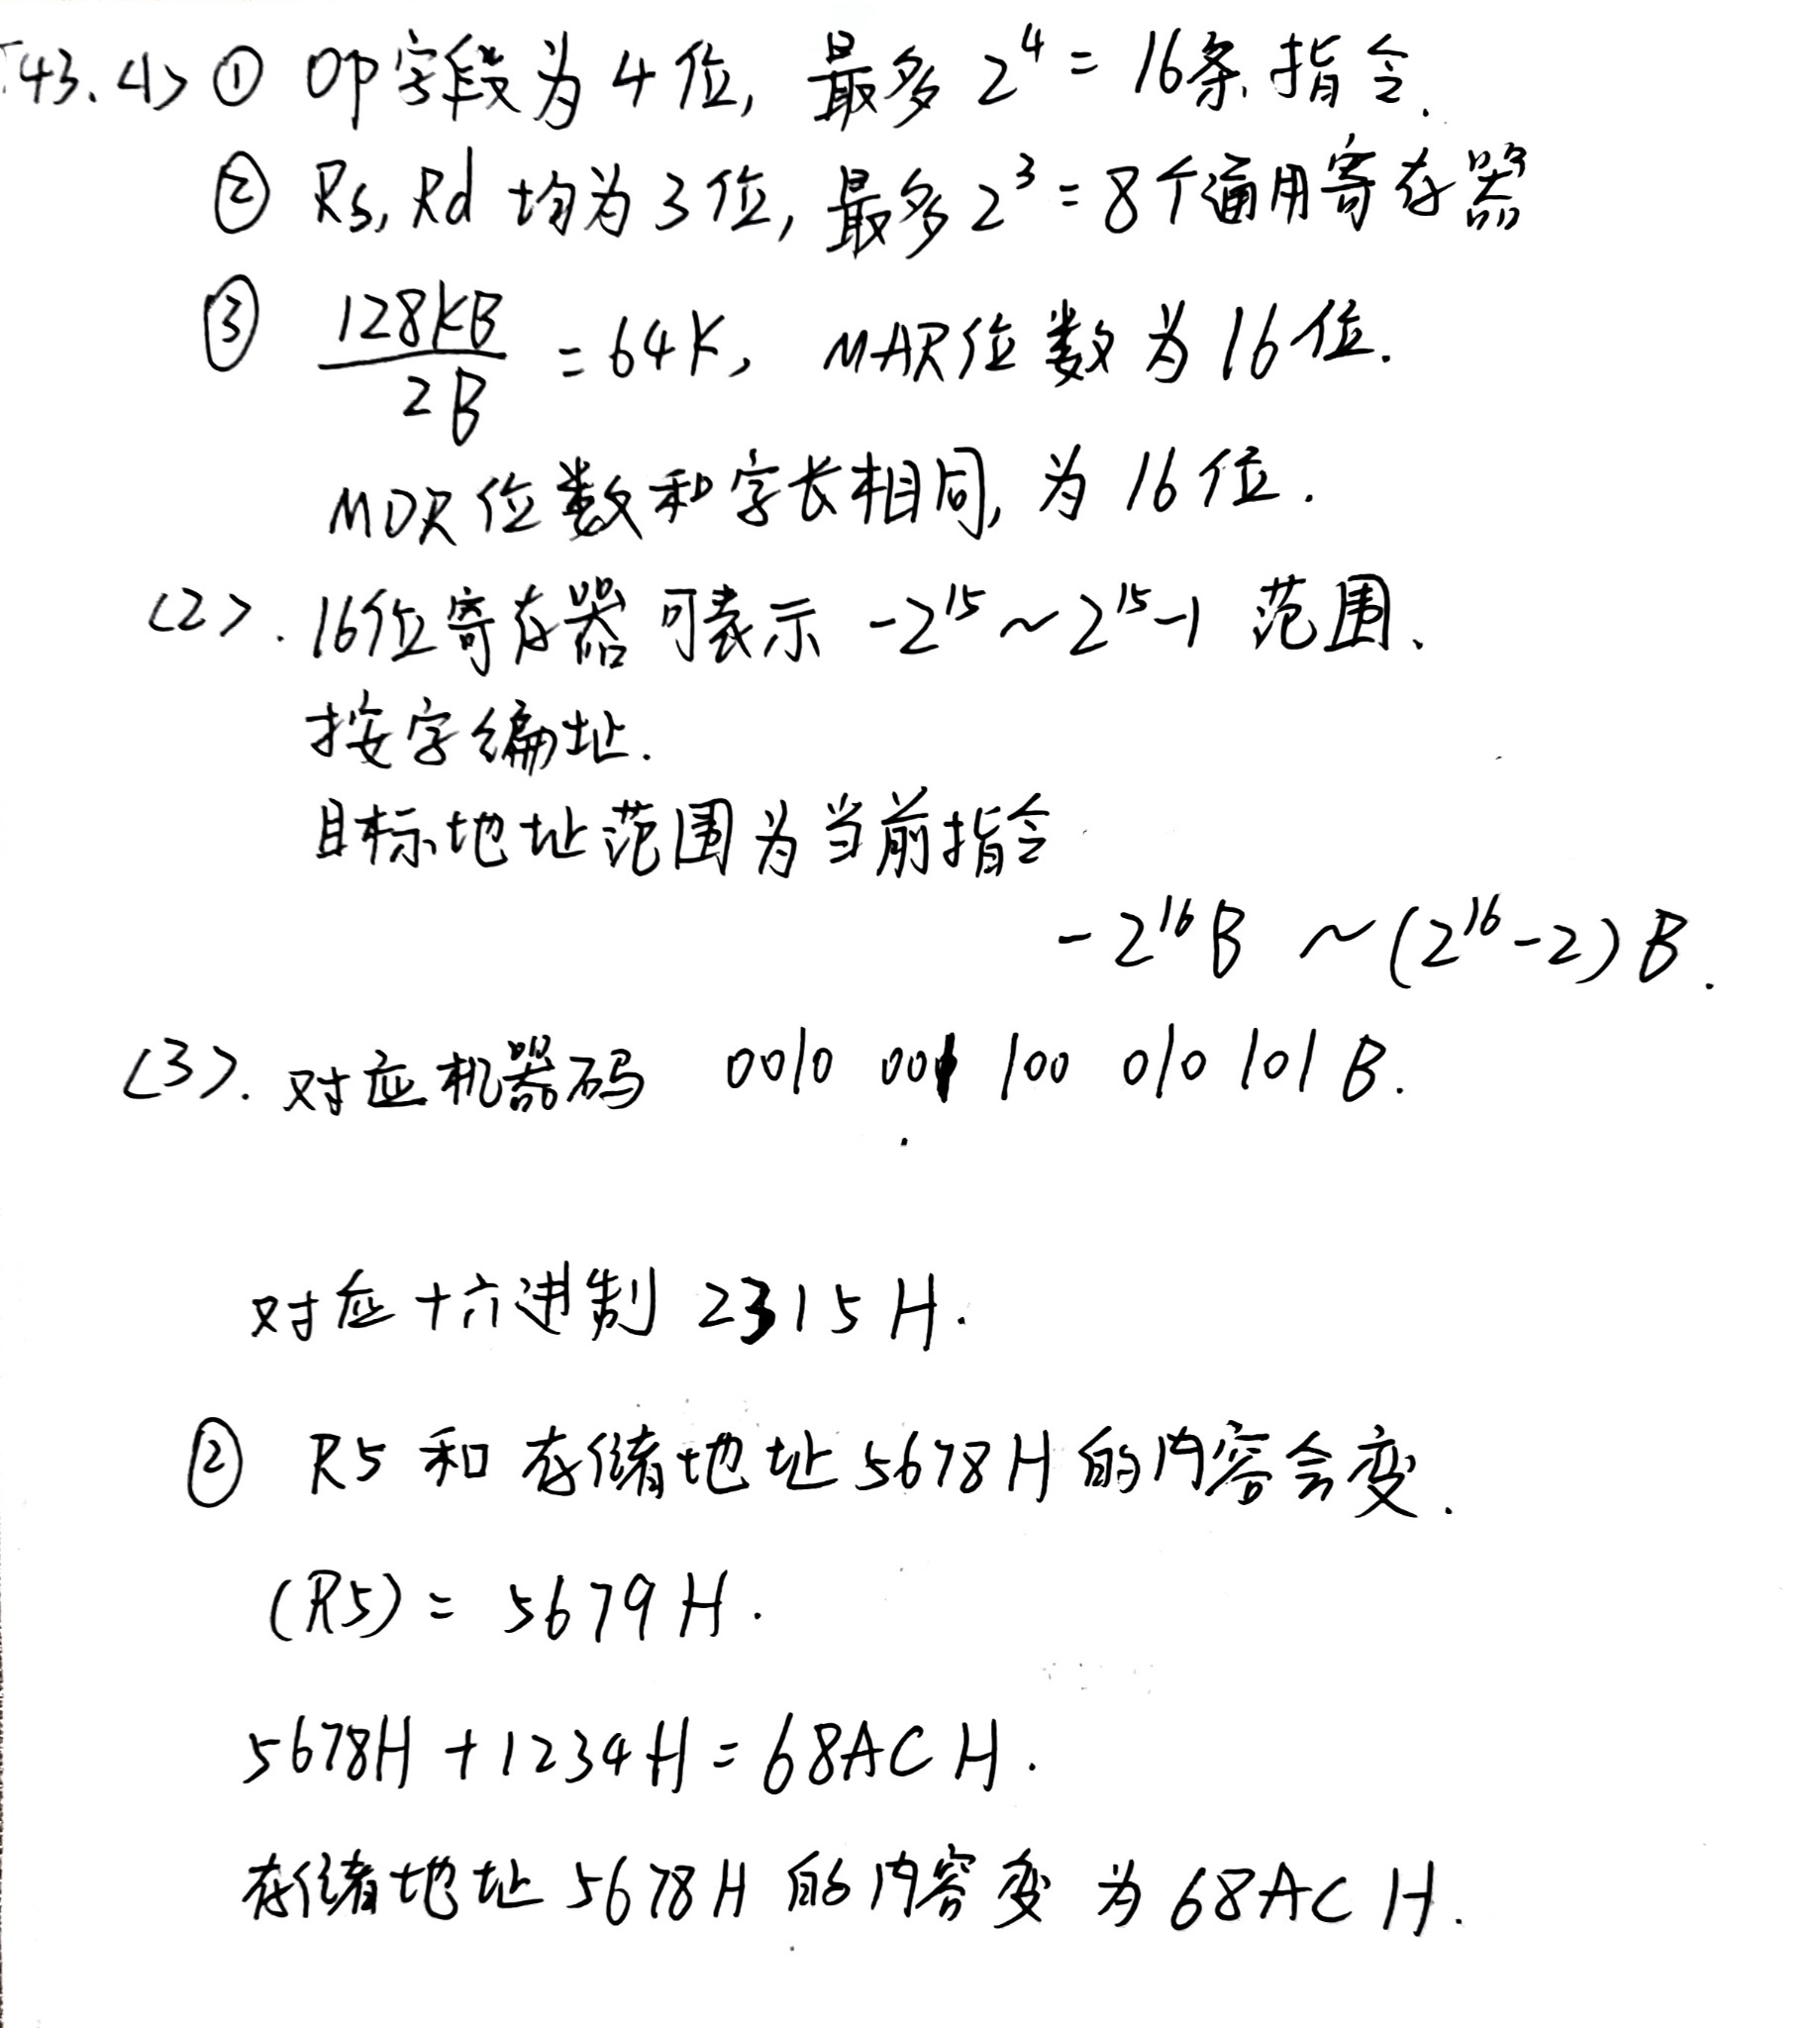 43.(1) ① OP字段为4位,最多2⁴=16条指令.
② Rs,Rd均为3位,最多2³=8个通用寄存器
③ 128KB/2B=64K, MAR位数为16位.
MDR位数和字长相同,为16位.
(2).16位寄存器可表示 -2¹⁵~2¹⁵-1 范围.
按字编址.
目标地址范围为当前指令
-2¹⁶B ~(2¹⁶-2)B.
(3).对应机器码 0010 001 100 010 101B.
对应十六进制 2315H.
② R5和存储地址5678H的内容会变.
(R5)=5679H.
5678H+1234H=68ACH.
存储地址5678H的内容变为68ACH.